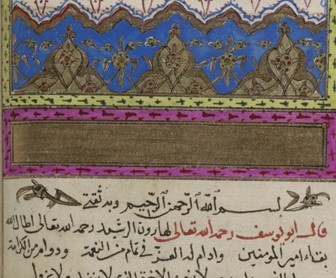 بسم الله الرحمن الرحيم وبه ثقتي
قال ابو يوسف رحمه الله تعالى لهارون الرشيد رحمه الله تعالى اطال الله
بقاء امير المؤمنين وادام له العز في تمام من النعمة ودوام من الكرامة